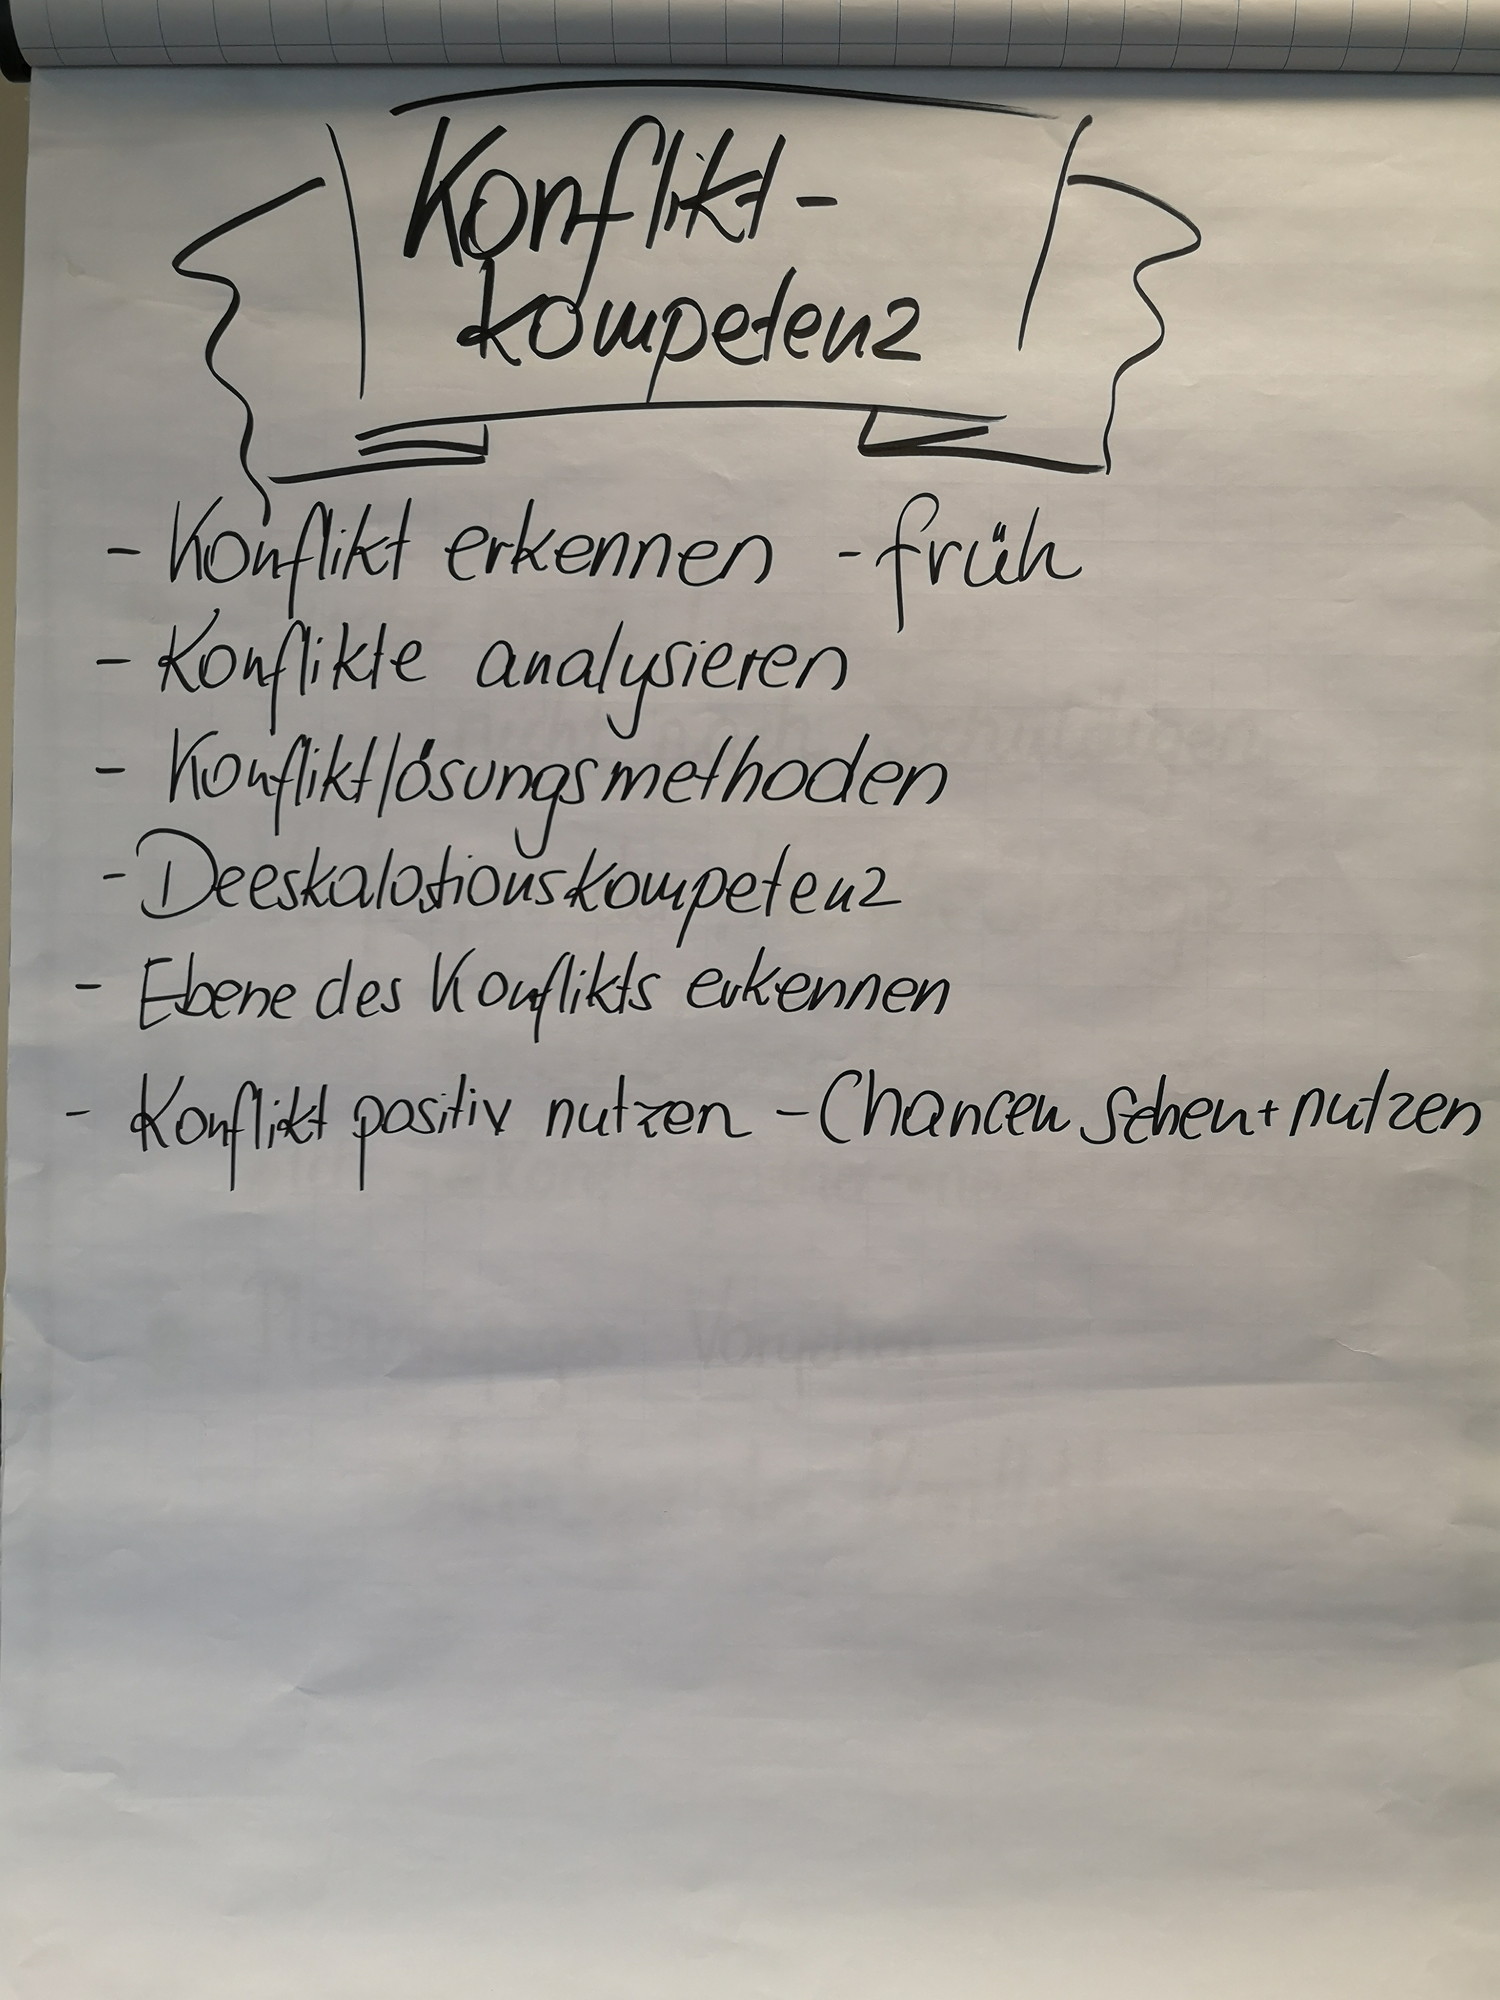 Konflikt-
kompetenz
- Konflikt erkennen - früh
- Konflikte analysieren
- Konfliktlösungsmethoden
- Deeskalationskompetenz
- Ebene des Konflikts erkennen
- Konflikt positiv nutzen - Chancen sehen + nutzen